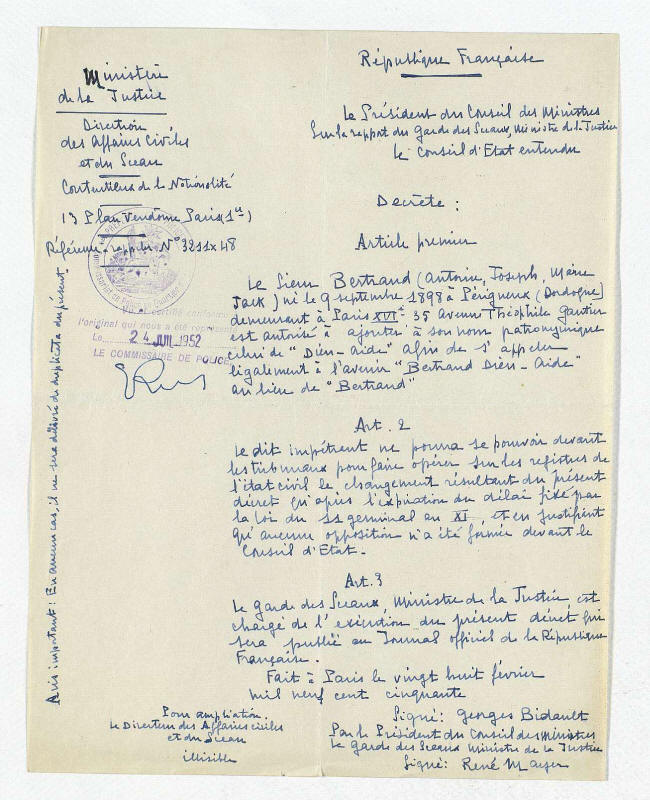 Ministère
de la Justice
Direction
des Affaires Civiles
et du Sceau
Contentieux de la Nationalité
13 Place Vendôme Paris (1er)
Référence à rappeler N° 3211x48
République Française
Le Président du Conseil des Ministres
Sur le rapport du Garde des Sceaux, Ministre de la Justice
Le Conseil d'Etat entendu
Decrète :
Article premier
Le Sieur Bertrand (Antoine, Joseph, Marie
Jack) né le 9 septembre 1898 à Périgueux (Dordogne)
demeurant à Paris XVIe 35 Avenue Théophile Gautier
est autorisé à ajouter à son nom patronymique
celui de "Dieu-aide" afin de s'appeler
légalement à l'avenir "Bertrand Dieu-aide"
au lieu de "Bertrand"
Art. 2
Le dit impétrant ne pourra se pourvoir devant
les tribunaux pour faire opérer sur les registres de
l'état civil le changement résultant du présent
décret qu'après l'expiration du délai fixé par
la loi du 11 germinal an XI, et en justifiant
qu'aucune opposition n'a été formée devant le
Conseil d'Etat.
Art. 3
Le Garde des Sceaux, Ministre de la Justice, est
chargé de l'exécution du présent décret qui
sera publié au Journal officiel de la République
Française.
Fait à Paris le vingt huit février
mil neuf cent cinquante
Signé: Georges Bidault
Par le Président du Conseil des Ministres
Le Garde des Sceaux Ministre de la Justice
Signé: René Mayer
Pour ampliation:
Le Directeur des Affaires civiles
et du Sceau
illisible
certifié conforme
l'original qui nous a été représenté
Le 24 JUIL 1952
LE COMMISSAIRE DE POLICE
Avis important: En aucun cas, il ne sera délivré de duplicata du présent.